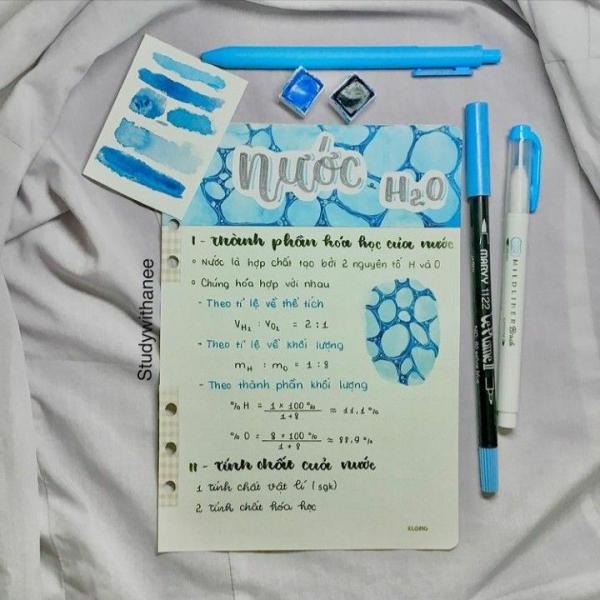 nước - H₂O
I - thành phần hóa học của nước
◦ Nước là hợp chất tạo bởi 2 nguyên tố H và O
◦ Chúng hóa hợp với nhau
- Theo tỉ lệ về thể tích
V_H₂ : V_O₂ = 2 : 1
- Theo tỉ lệ về khối lượng
m_H : m_O = 1 : 8
- Theo thành phần khối lượng
% H = (1 x 100 %)/(1 + 8) ≈ 11,1 %
% O = (8 x 100 %)/(1 + 8) ≈ 88,9 %
II - tính chất của nước
1 tính chất vật lí (sgk)
2 tính chất hóa học
KLONG
Studywithanee
MARVY 1122
MILDLINER Brush